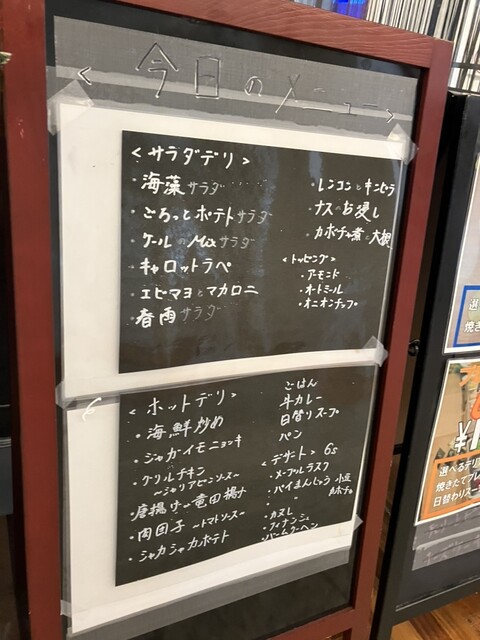 < 今日のメニュー >
< サラダデリ >
・海藻サラダ
・ごろっとポテトサラダ
・ケールのMixサラダ
・キャロットラペ
・エビマヨとマカロニ
・春雨サラダ
・レンコンとキンピラ
・ナスのお浸し
・カボチャ煮と大根
<トッピング>
・アーモンド
・オートミール
・オニオンチップ
< ホットデリ >
・海鮮炒め
・ジャガイモニョッキ
・グリルチキン
～シャリアピンソース～
唐揚げ
竜田揚げ
・肉団子 ～トマトソース～
・シャカシャカポテト
ごはん
牛カレー
日替りスープ
パン
<デザート> 6s
・メープルラスク
・パイまんじゅう 小豆
・カヌレ
・フィナンシェ
・バームクーヘン
選べるデリ
焼きたてプレ
日替わりスー